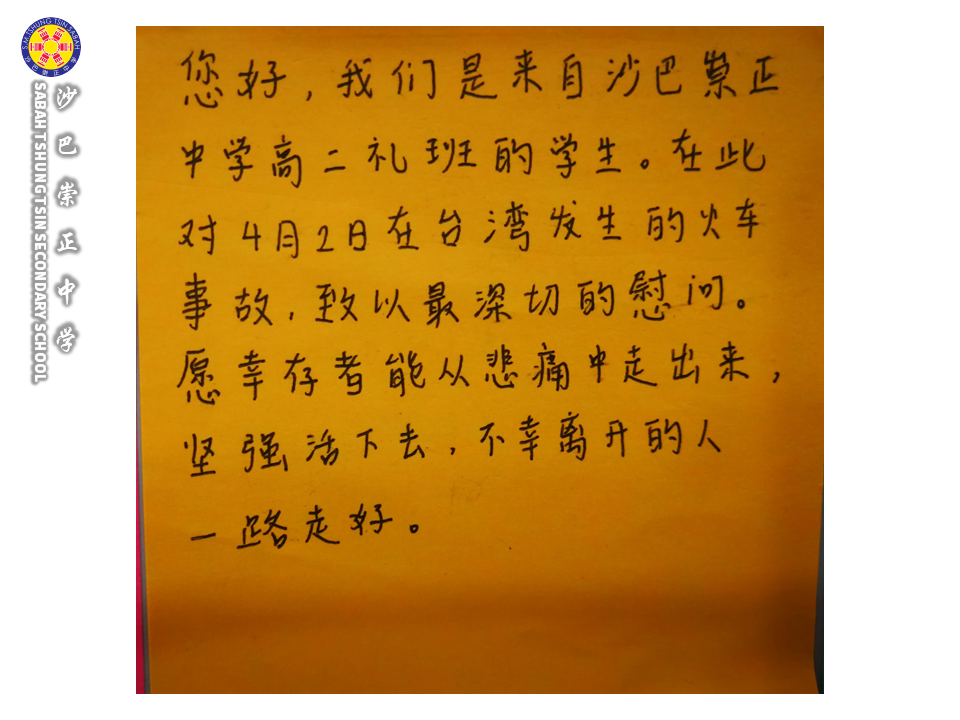 S.M. TSHUNG TSIN SABAH
沙巴崇正中学
沙巴崇正中学
SABAH TSHUNG TSIN SECONDARY SCHOOL
您好，我们是来自沙巴崇正
中学高二礼班的学生。在此
对4月2日在台湾发生的火车
事故，致以最深切的慰问。
愿幸存者能从悲痛中走出来，
坚强活下去，不幸离开的人
一路走好。